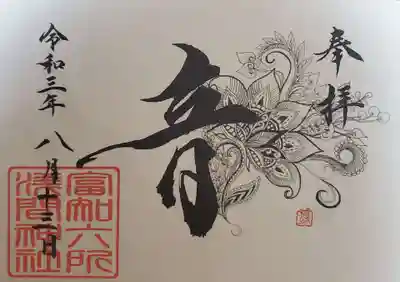 奉拝
音
令和三年
八月十三日
富知六所
浅間神社